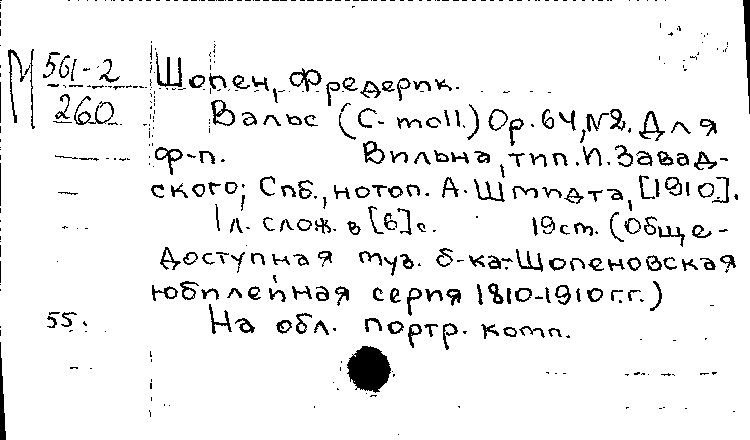 М 561-2
260
Шопен, Фредерик.
Вальс (C-moll.) Op. 64, №2. Для
ф-п. Вильна, тип. И. Завад-
ского; Спб., нотоп. А. Шмидта, [1910].
1 л. слож. в [6] с. 19 ст. (Обще-
доступная муз. б-ка: Шопеновская
юбилейная серия 1810-1910 г.г.)
55. На обл. портр. комп.